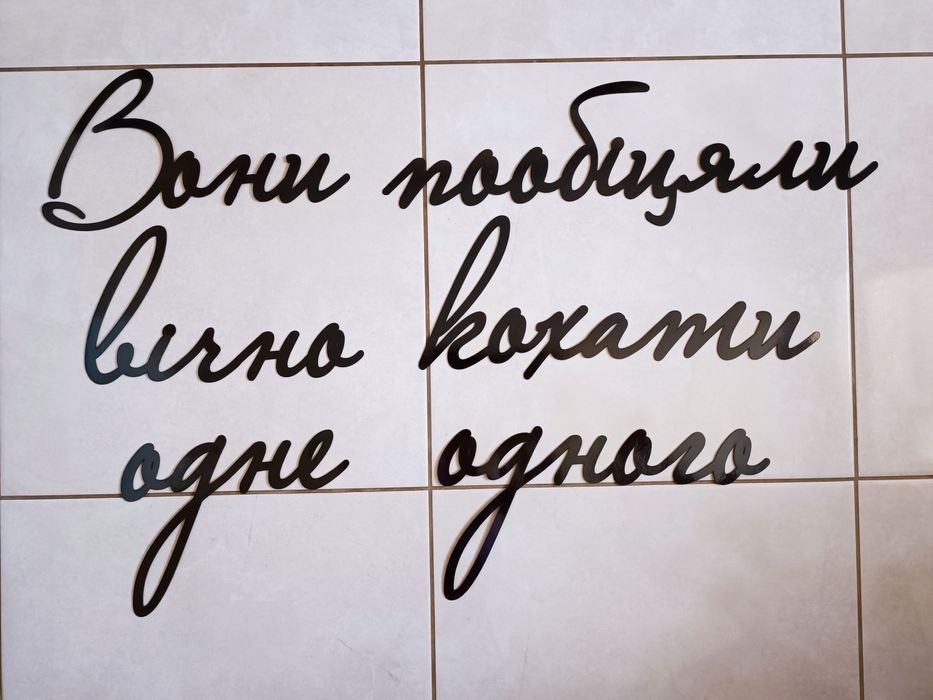 Вони пообіцяли
вічно кохати
одне одного